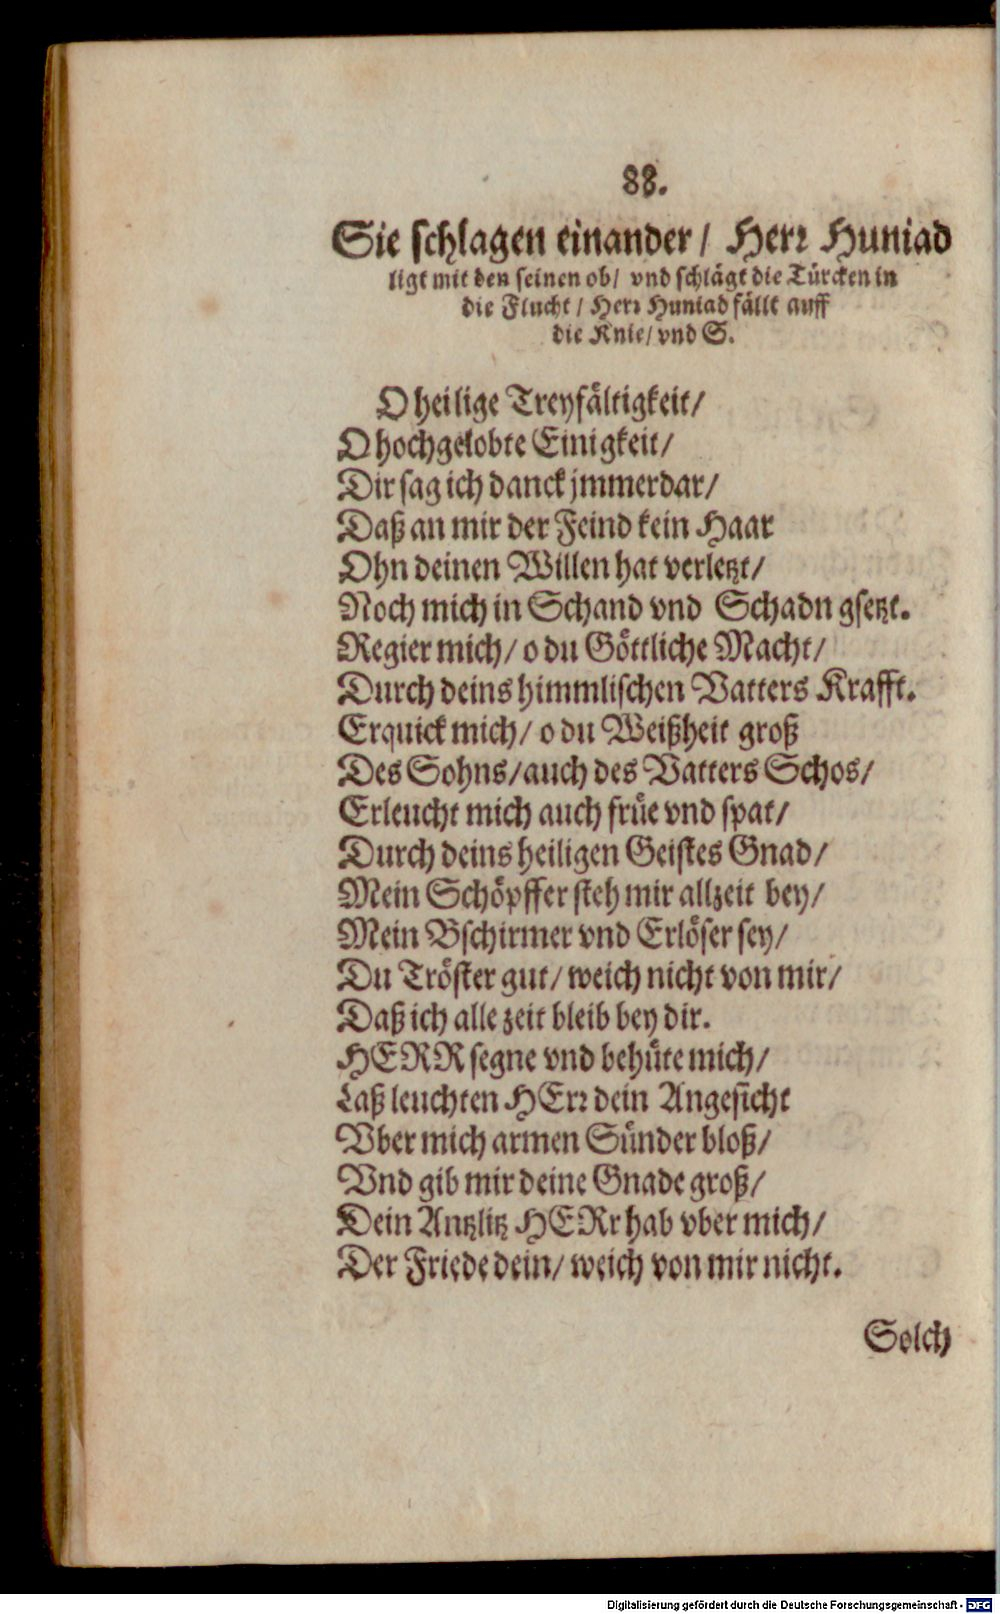 88.
Sie schlagen einander / Herr Huniad
ligt mit den seinen ob / vnd schlägt die Türcken in
die Flucht / Herr Huniad fällt auff
die Knie / vnd S.
O heilige Treyfältigkeit /
O hochgelobte Einigkeit /
Dir sag ich danck jmmerdar /
Daß an mir der Feind kein Haar
Ohn deinen Willen hat verletzt /
Noch mich in Schand vnd Schadn gsetzt.
Regier mich / o du Göttliche Macht /
Durch deins himmlischen Vatters Krafft.
Erquick mich / o du Weißheit groß
Des Sohns / auch des Vatters Schos /
Erleucht mich auch früe vnd spat /
Durch deins heiligen Geistes Gnad /
Mein Schöpffer steh mir allzeit bey /
Mein Bschirmer vnd Erlöser sey /
Du Tröster gut / weich nicht von mir /
Daß ich alle zeit bleib bey dir.
HERR segne vnd behüte mich /
Laß leuchten HErr dein Angesicht
Vber mich armen Sünder bloß /
Vnd gib mir deine Gnade groß /
Dein Antzlitz HERr hab vber mich /
Der Friede dein / weich von mir nicht.
Solch
Digitalisierung gefördert durch die Deutsche Forschungsgemeinschaft - DFG